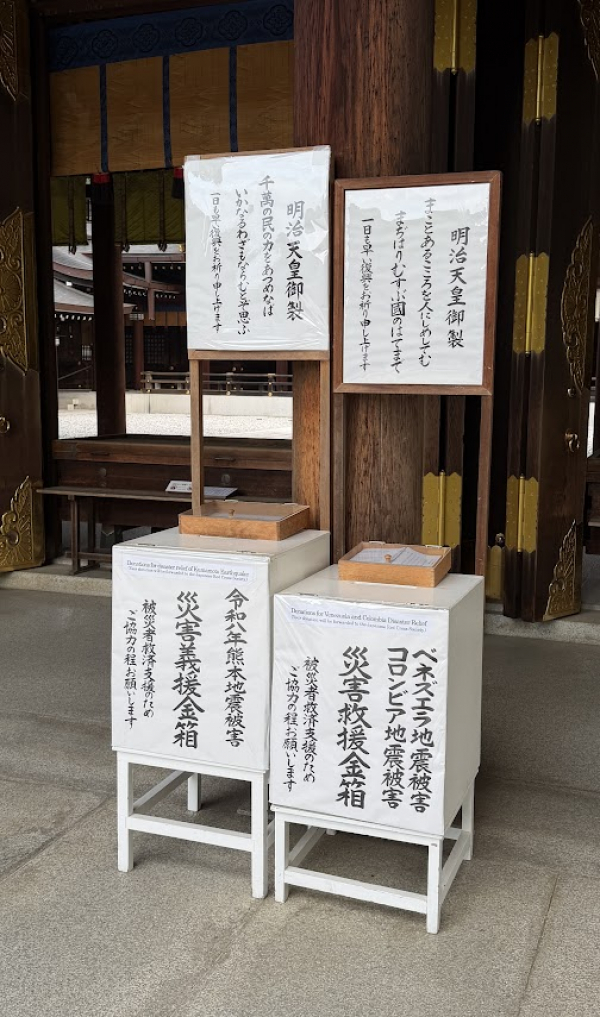 明治天皇御製
千萬の民の力をあつめなば
いかなるわざもならむとぞ思ふ
一日も早い復興をお祈り申し上げます
明治天皇御製
まことあるこころを人にしめしてむ
まぢはりむすぶ國のはてまで
一日も早い復興をお祈り申し上げます
Donations for disaster relief of Kumamoto Earthquake
(Your donation will be forwarded to the Japanese Red Cross Society.)
令和八年熊本地震被害
災害義援金箱
被災者救済支援のため
ご協力の程お願いします
Donations for Venezuela and Colombia Disaster Relief
(Your donation will be forwarded to the Japanese Red Cross Society.)
ベネズエラ地震被害
コロンビア地震被害
災害救援金箱
被災者救済支援のため
ご協力の程お願いします